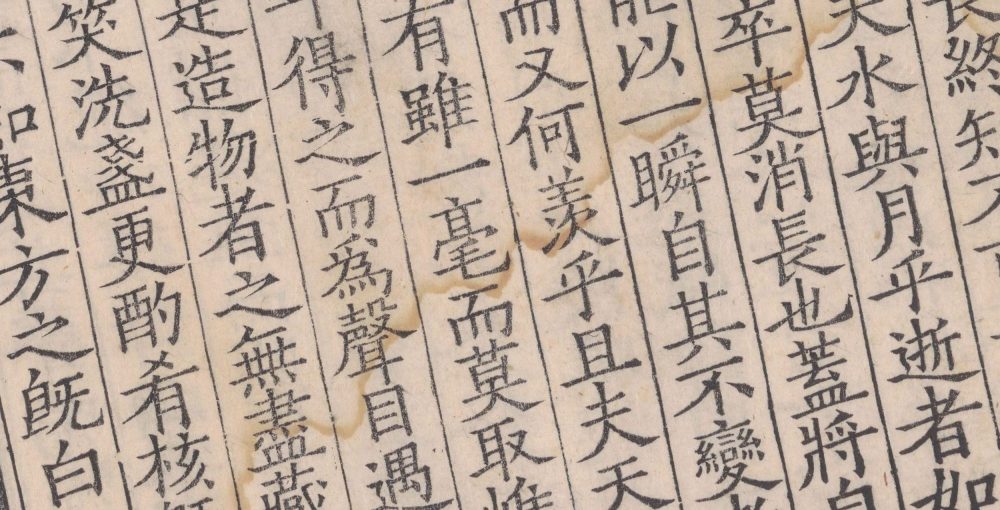 長終知不
夫水與月乎逝者如
卒莫消長也葢將自
能以一瞬自其不變者
而又何羨乎且夫天
有雖一毫而莫取惟
得之而爲聲目遇
是造物者之無盡藏
笑洗盞更酌肴核
知東方之旣白